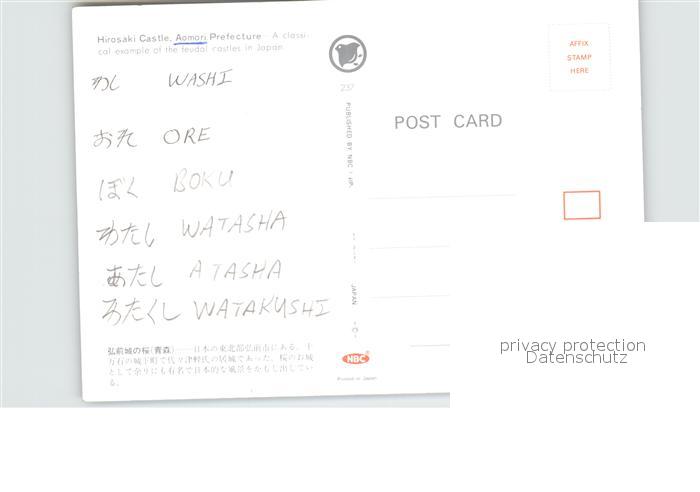 Hirosaki Castle, Aomori Prefecture—A classi-
cal example of the feudal castles in Japan.
わし WASHI
おれ ORE
ぼく BOKU
わたし WATASHA
あたし ATASHA
わたくし WATAKUSHI
弘前城の桜(青森)——日本の東北部弘前市にある。十
万石の城下町で代々津軽氏の居城であった。桜のお城
として余りにも有名で日本的な風景をかもし出してい
る。
237
PUBLISHED BY NBC
JAPAN
NBC
Printed in Japan
POST CARD
AFFIX
STAMP
HERE
privacy protection
Datenschutz